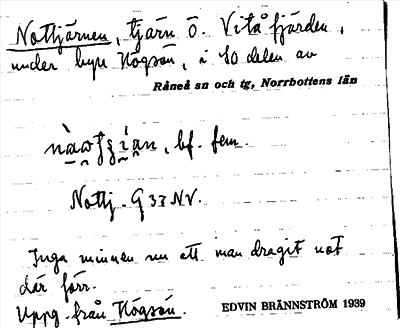 Nottjärnen, tjärn ö. Vitåfjärden,
under byn Högsön, i sö delen av
Råneå sn och tg, Norrbottens län
bf. fem.
Nottj. G 33 NV.
Inga minnen nu att man dragit not
där förr.
Uppg. från Högsön.
EDVIN BRÄNNSTRÖM 1939